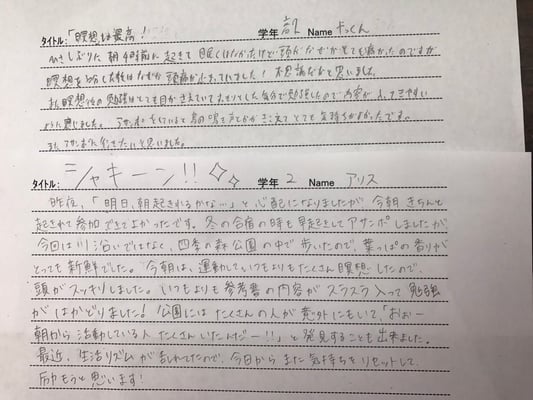 タイトル:「瞑想は最高!」 学年 Name たっくん
ひさしぶりに朝4時前に起きて眠くはなかったけど頭がなぜかとても痛かったのですが
瞑想を終えた後はなぜか頭痛が小さくなっていました!不思議だなと思いました。
また瞑想後の勉強はとても目がさえていてすっきりとした気分で勉強したので内容が入ってきやすい
ように感じました。アサンポをしていると鳥の鳴き声とかがきこえてとても気持ちがよかったです。
またアサンポに行きたいと思いました。
タイトル: シャキーン!! 学年 2 Name アリス
昨夜、「明日、朝起きれるかな…」と心配になりましたが、今朝きちんと
起きれて参加できてよかったです。冬の合宿の時も早起きしてアサンポしましたが、
今回は川沿いではなく、四季の森公園の中で歩いたので、葉っぱの香りが
とっても新鮮でした。今朝は、運動していつもよりもたくさん瞑想したので、
頭がスッキリしました。いつもよりも参考書の内容がスラスラ入って勉強
がはかどりました!公園にはたくさんの人が意外にもいて、「おぉー
朝から活動している人たくさんいたんだー!!」と発見することも出来ました。
最近、生活リズムが乱れてたので、今日からまた気持ちをリセットして、
励もうと思います!